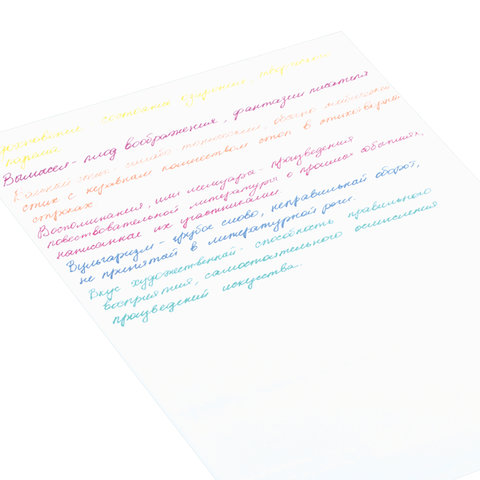 Вдохновение состояние озарения, творческого
порыва
Вымысел - плод воображения, фантазии писателя
стих с неравным количеством стоп в стихотворных
строках
Воспоминания, или мемуары - произведения
повествовательной литературы о прошлых событиях,
написанные их участниками.
Вульгаризм - грубое слово, неправильный оборот,
не принятый в литературной речи.
Вкус художественный - способность правильного
восприятия, самостоятельного осмысления
произведений искусства.